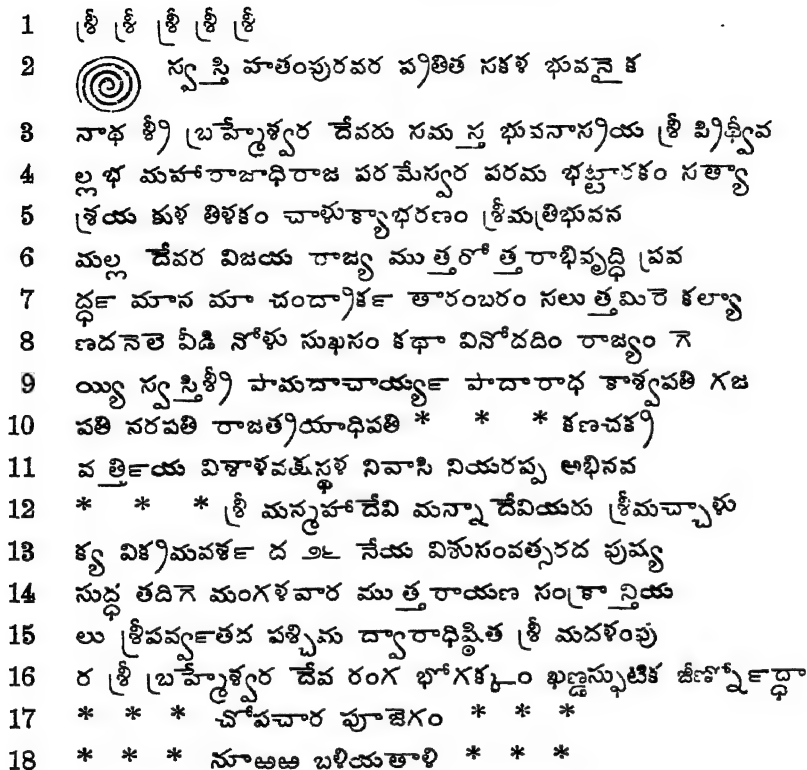 1 శ్రీ శ్రీ శ్రీ శ్రీ శ్రీ
2 స్వస్తి హతంపురవర ప్రితిత సకళ భువనైక
3 నాథ శ్రీ బ్రహ్మేశ్వర దేవరు సమస్త భువనాస్రయ శ్రీ ప్రిథ్వీవ
4 ల్లభ మహారాజాధిరాజ పరమేస్వర పరమ భట్టారకం సత్యా
5 శ్రయ కుళ తిళకం చాళుక్యాభరణం శ్రీమత్రిభువన
6 మల్ల దేవర విజయ రాజ్య ముత్తరోత్తరాభివృద్ధి ప్రవ
7 ర్ద్ధమాన మా చంద్రార్క తారంబరం సలుత్తమిరె కల్యా
8 ణదనెలె వీడి నోళు సుఖసం కథా వినోదదిం రాజ్యం గె
9 య్యి స్వస్తిశ్రీ పామదాచార్య్య పాదారాధ కాశ్వపతి గజ
10 పతి నరపతి రాజత్రయాధిపతి * * * కణచక్రి
11 వర్త్తియ విశాళవక్షస్థళ నివాసి నియరప్ప అభినవ
12 * * * శ్రీ మన్మహాదేవి మన్నాదేవియరు శ్రీమచ్చాళు
13 క్య విక్రమవర్ష ద ౨౬ నేయ విశుసంవత్సరద పుష్య
14 సుద్ధ తదిగె మంగళవార ముత్తరాయణ సంక్రాన్తియ
15 లు శ్రీపర్వ్వతద పశ్చిమ ద్వారాధిష్ఠిత శ్రీ మదళంపు
16 ర శ్రీ బ్రహ్మేశ్వర దేవ రంగ భోగక్కం ఖణ్డస్ఫుటిక జీర్ణ్నోద్ధా
17 * * * చోపచార పూజెగం * * *
18 * * * నూఱఱ బళియతాళి * * *